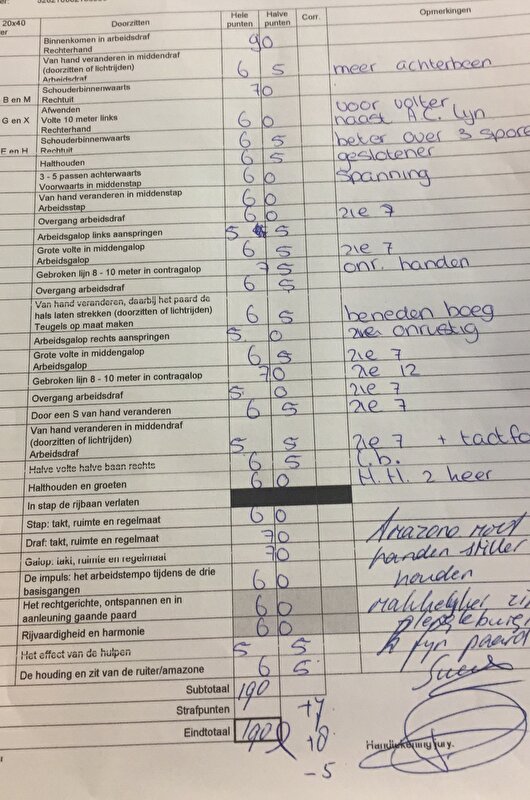 20x40 Doorzitten Hele punten Halve punten Corr. Opmerkingen
Binnenkomen in arbeidsdraf
Rechterhand 9 0
Van hand veranderen in middendraf
(doorzitten of lichtrijden)
Arbeidsdraf 6 5 meer achterbeen
B en M Schouderbinnenwaarts
Rechtuit 7 0
G en X Afwenden
Volte 10 meter links
Rechterhand 6 0 voor volter
naast A.C. lyn
E en H Schouderbinnenwaarts
Rechtuit 6 5 beter over 3 spore
Halthouden 6 5 geslotener
3 - 5 passen achterwaarts
Voorwaarts in middenstap 6 0 spanning
Van hand veranderen in middenstap
Arbeidsstap 6 0
Overgang arbeidsdraf 6 0 zie 7
Arbeidsgalop links aanspringen 5 5
Grote volte in middengalop
Arbeidsgalop 6 5 zie 7
Gebroken lijn 8 - 10 meter in contragalop 7 5 onr. handen
Overgang arbeidsdraf 6 5
Van hand veranderen, daarbij het paard de
hals laten strekken (doorzitten of lichtrijden)
Teugels op maat maken 6 5 beneden boeg
Arbeidsgalop rechts aanspringen 5 0 onrustig
Grote volte in middengalop
Arbeidsgalop 6 5 zie 7
Gebroken lijn 8 - 10 meter in contragalop 7 0 zie 12
Overgang arbeidsdraf 5 0 zie 7
Door een S van hand veranderen 6 5 zie 7
Van hand veranderen in middendraf
(doorzitten of lichtrijden)
Arbeidsdraf 5 5 zie 7 + tactfo
Halve volte halve baan rechts 6 5 l.b.
Halthouden en groeten 6 0 H.H. 2 heer
In stap de rijbaan verlaten
Stap: takt, ruimte en regelmaat 6 0
Draf: takt, ruimte en regelmaat 7 0 Amazone moet
Galop: takt, ruimte en regelmaat 7 0 handen stiller
De impuls: het arbeidstempo tijdens de drie
basisgangen 6 0 houden
Het rechtgerichte, ontspannen en in
aanleuning gaande paard 6 0 makkelyker
Rijvaardigheid en harmonie 6 0
Het effect van de hulpen 5 5 fyn paard
De houding en zit van de ruiter/amazone 6 5
Subtotaal 190
Strafpunten +7
Eindtotaal 190 +8 Handtekening jury.
-5